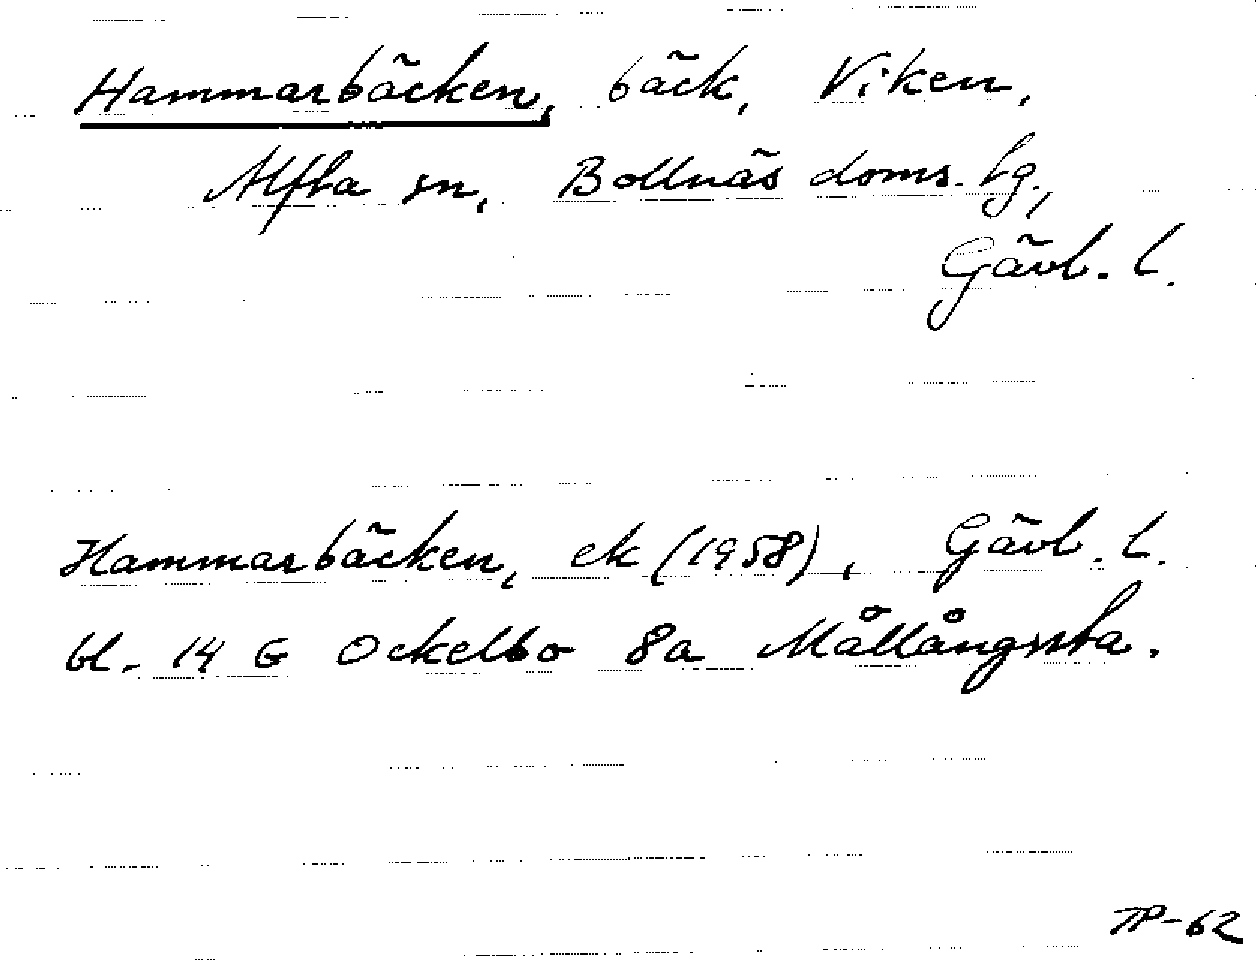 Hammarbäcken, bäck, Viken,
Alfta sn, Bollnäs doms. tg.,
Gävl. l.
Hammarbäcken, ek (1958), Gävl. l.
bl. 14 G Ockelbo 8a Mållångssta.
TP-62